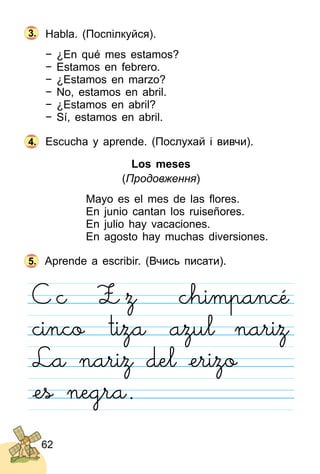 3. Habla. (Поспілкуйся).
– ¿En qué mes estamos?
– Estamos en febrero.
– ¿Estamos en marzo?
– No, estamos en abril.
– ¿Estamos en abril?
– Sí, estamos en abril.
4. Escucha y aprende. (Послухай і вивчи).
Los meses
(Продовження)
Mayo es el mes de las flores.
En junio cantan los ruiseñores.
En julio hay vacaciones.
En agosto hay muchas diversiones.
5. Aprende a escribir. (Вчись писати).
C c Z z chimpancé
cinco tiza azul nariz
La nariz del erizo
es negra.
62